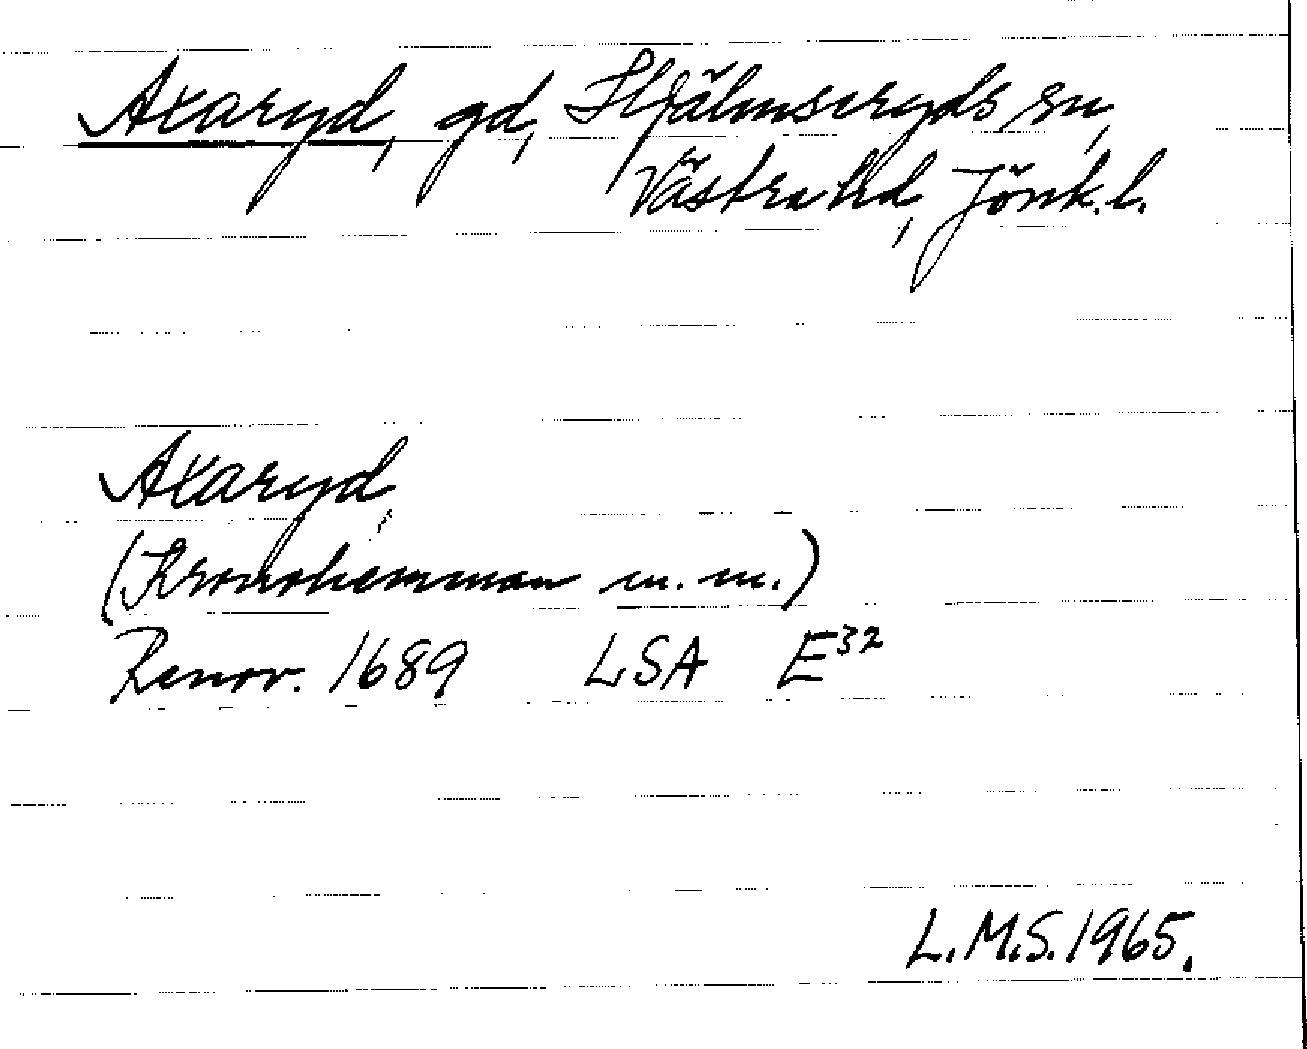 Axaryd, gd, Hjälmseryds sn,
Västra hd, Jönk. l.
Axaryd,
(Kronohemman m. m.)
Renov. 1689 LSA E32
L.M.S. 1965.